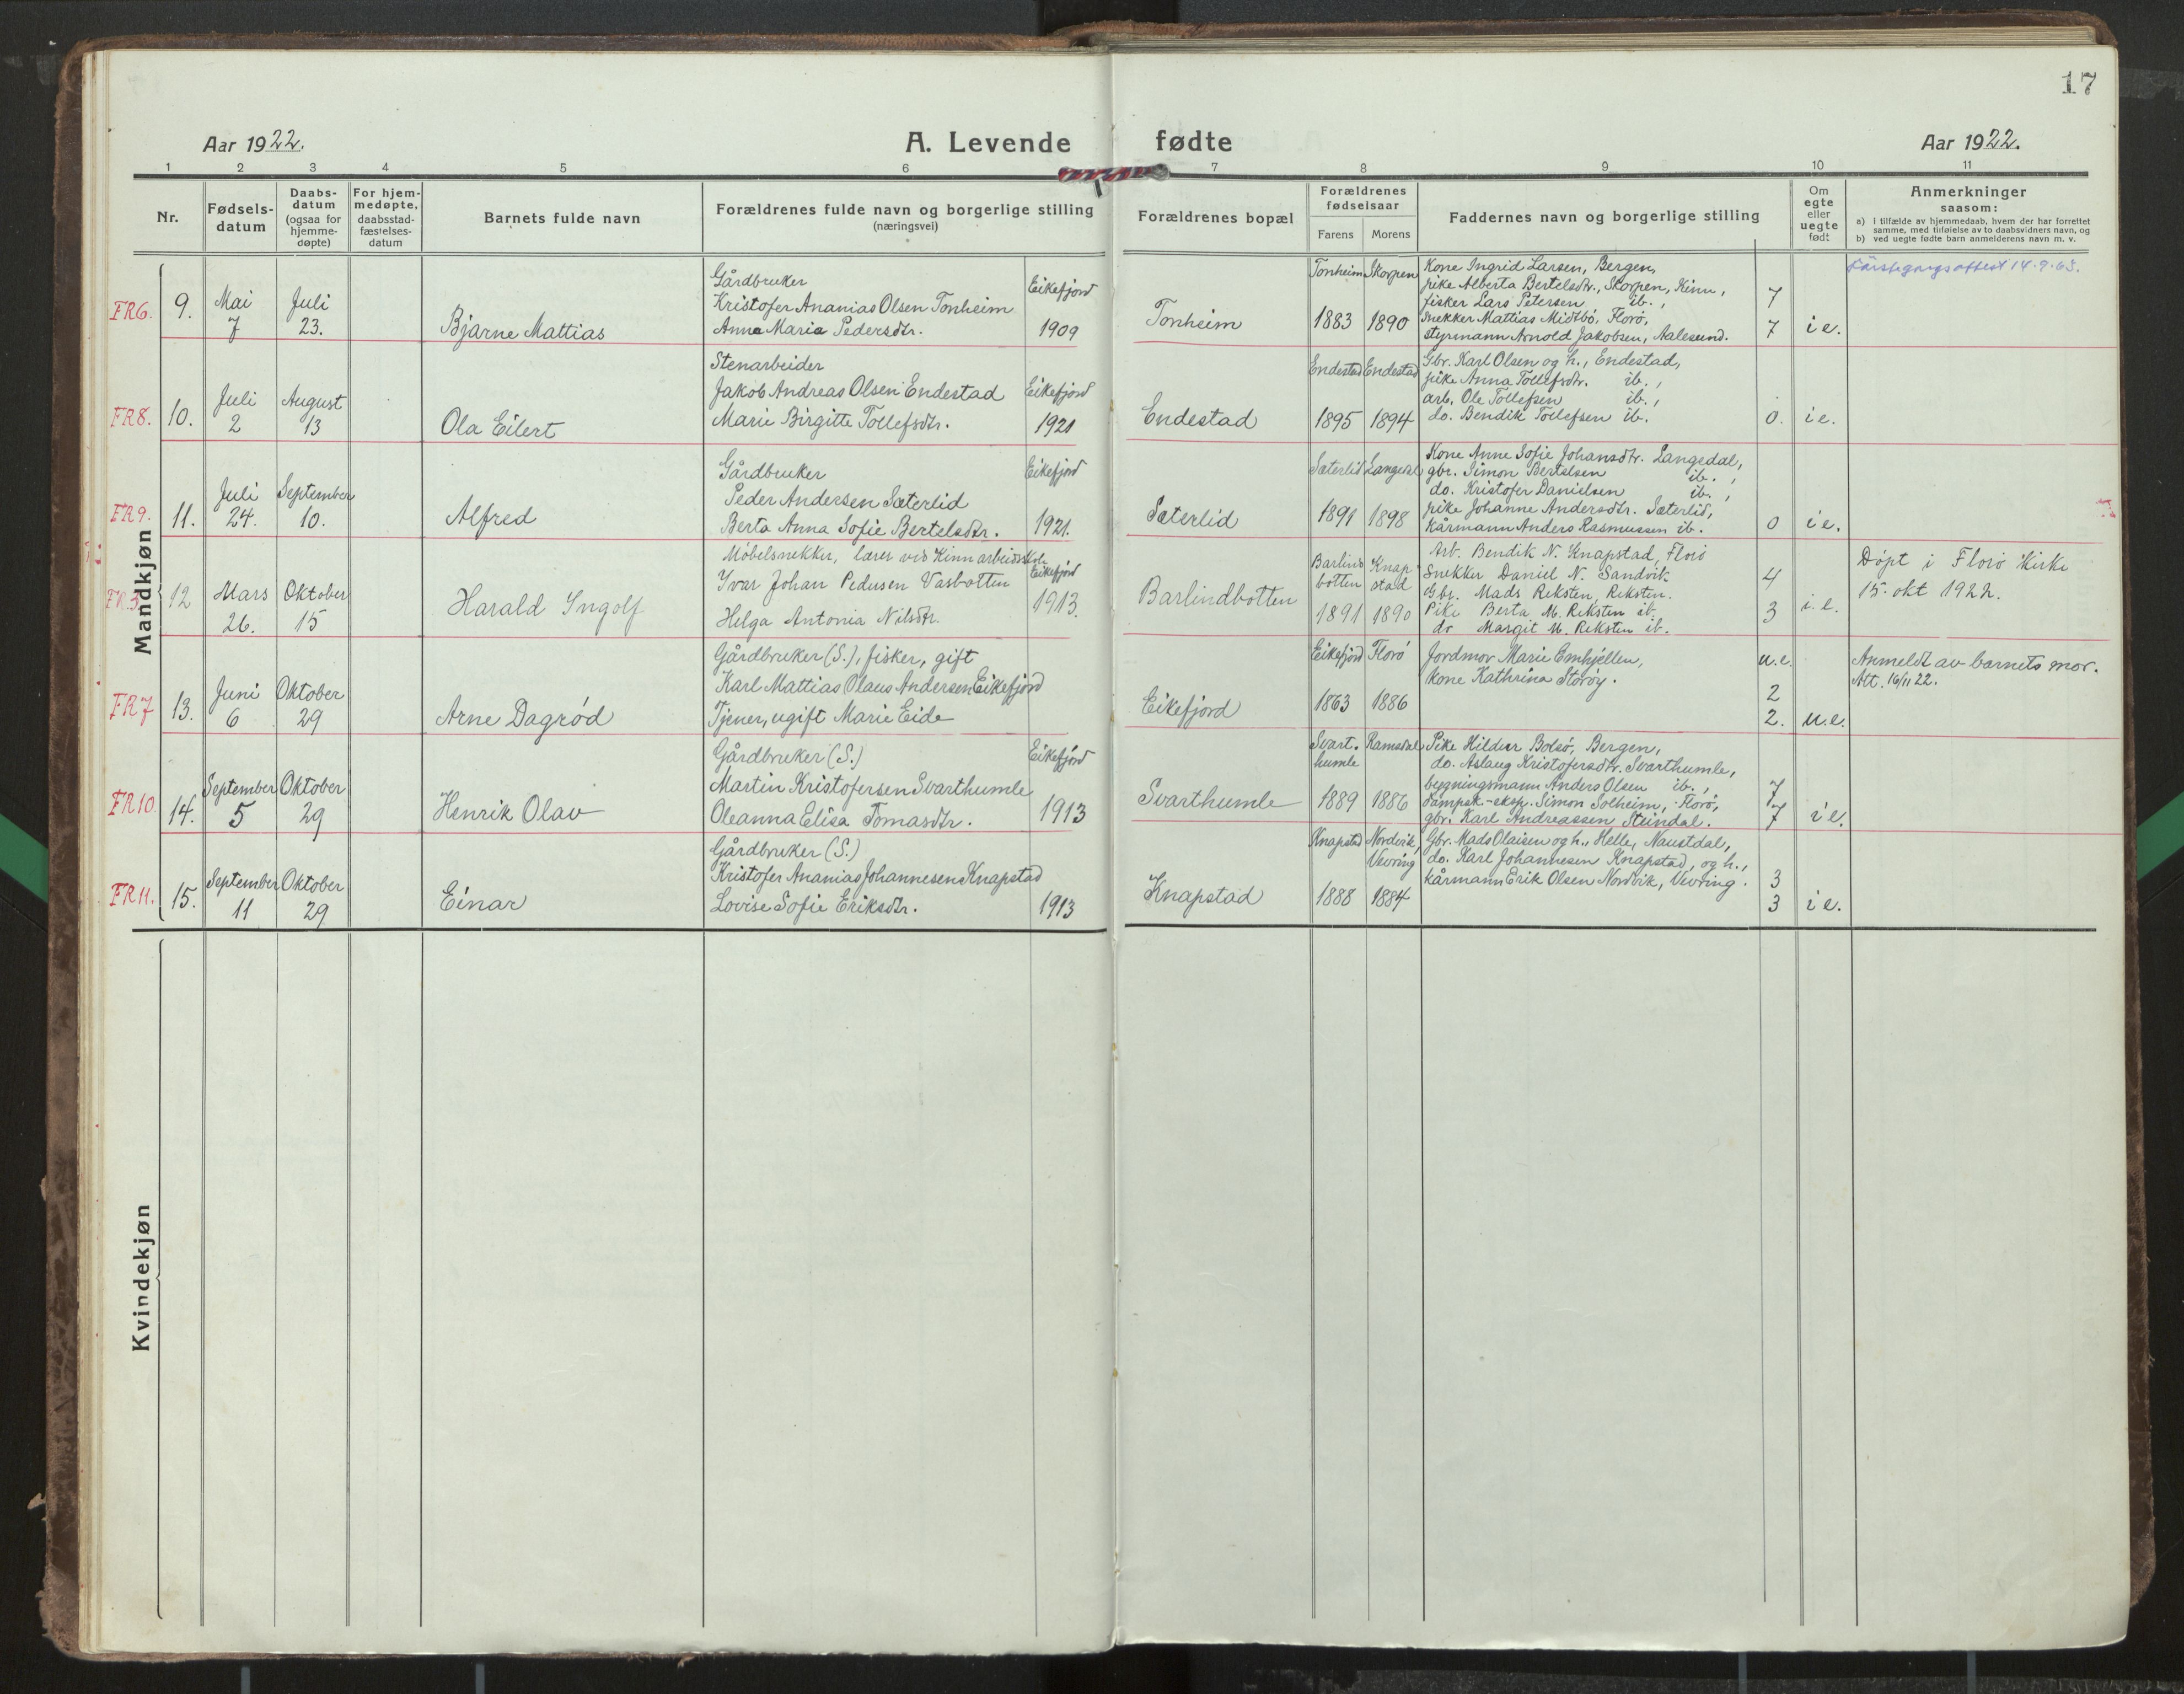 17
Aar 1922.
A. Levende fødte
Aar 1922.
1 2 3 4 5 6 7 8 9 10 11
Nr.
Fødsels-
datum
Daabs-
datum
(ogsaa for
hjemme-
døpte)
For hjem-
medøpte,
daabsstad-
fæstelses-
datum
Barnets fulde navn
Forældrenes fulde navn og borgerlige stilling
(næringsvei)
Forældrenes bopæl
Forældrenes
fødselsaar
Farens Morens
Faddernes navn og borgerlige stilling
Om
egte
eller
uegte
født
Anmerkninger
saasom:
a) I tilfælde av hjemmedaab, hvem der har forrettet
samme, med tilføielse av to daabsvidners navn, og
b) ved uegte fødte barn anmelderens navn m. v.
Mandkjøn
FR6. 9.
Mai
7
Juli
23.
Bjarne Mattias
Gårdbruker
Kristofer Ananias Olsen Tonheim
Anna Maria Pedersdtr.
Eikefjord
1909
Tonheim
Tonheim Skorpen
1883 1890
Kone Ingrid Larsen, Bergen,
pike Alberta Bertelsdtr., Skorpen, Kinn,
fisker Lars Petersen ib.,
snekker Mattias Midtbö, Florö,
styrmann Arnold Jakobsen, Aalesund.
7
7
i e.
Förstegangsattest 14.9.63.
FR8. 10.
Juli
2
August
13
Ola Eilert
Stenarbeider
Jakob Andreas Olsen Endestad
Marie Birgitte Tollefsdtr.
Eikefjord
1921
Endestad
Endestad Endestad
1895 1894
Gbr. Karl Olsen og h., Endestad,
pike Anna Tollefsdtr. ib.,
arb. Ole Tollefsen ib.,
do. Bendik Tollefsen ib.
0.
i e.
FR9. 11.
Juli
24.
September
10.
Alfred
Gårdbruker
Peder Andersen Sæterlid
Berta Anna Sofie Bertelsdtr.
Eikefjord
1921.
Sæterlid
Sæterlid Langedal
1891 1898
Kone Anne Sofie Johansdtr. Langedal,
gbr. Simon Bertelsen ib.,
do. Kristofer Danielsen ib.,
pike Johanne Andersdtr. Sæterlid,
kårmann Anders Rasmussen ib.
0
i e.
FR5. 12
Mars
26.
Oktober
15
Harald Ingolf
Möbelsnekker, lærer ved Kinn arbeidsskole
Yvar Johan Pedersen Vasbotten
Helga Antonia Nilsdtr.
Eikefjord
1913.
Barlindbotten
Barlind
botten
Knap
stad
1891 1890
Arb. Bendik N. Knapstad, Florö
Snekker Daniel N. Sandvik
Gbr. Mads Reksten, Reksten.
Pike Berta M. Reksten ib.
do Margit M. Reksten ib.
4
3
i. e.
Döpt i Florö Kirke
15. okt 1922.
FR7 13.
Juni
6
Oktober
29
Arne Dagröd
Gårdbruker (S.), fisker, gift
Karl Mattias Olaus Andersen Eikefjord
Tjener, ugift Marie Eide
Eikefjord
Eikefjord Florö
1863 1886
Jordmor Marie Emhjellen,
kone Kathrina Störöy.
u.e.
2
2.
u.e.
Anmeldt av barnets mor.
Att. 16/11 22.
FR10 14.
September
5
Oktober
29
Henrik Olav
Gårdbruker (S.)
Martin Kristofersen Svarthumle
Oleanna Elisa Tomasdtr.
Eikefjord
1913
Svarthumle
Svart-
humle
Ramsdal
1889 1886
Pike Hildur Bolsö, Bergen,
do. Aslaug Kristofersdtr. Svarthumle,
bygningsmann Anders Olsen ib.,
dampsk.-eksp. Simon Solheim, Florö,
gbr. Karl Andreassen Steindal.
7
7
i e.
FR11. 15.
September
11
Oktober
29
Einar
Gårdbruker (S.)
Kristofer Ananias Johannesen Knapstad
Lovise Sofie Eriksdtr.
1913
Knapstad
Knapstad Nordvik,
Vevring
1888 1884
Gbr. Mads Olaisen og h., Helle, Naustdal,
do. Karl Johannesen Knapstad, og h.,
kårmann Erik Olsen Nordvik, Vevring.
3
3
i e.
Kvindekjøn